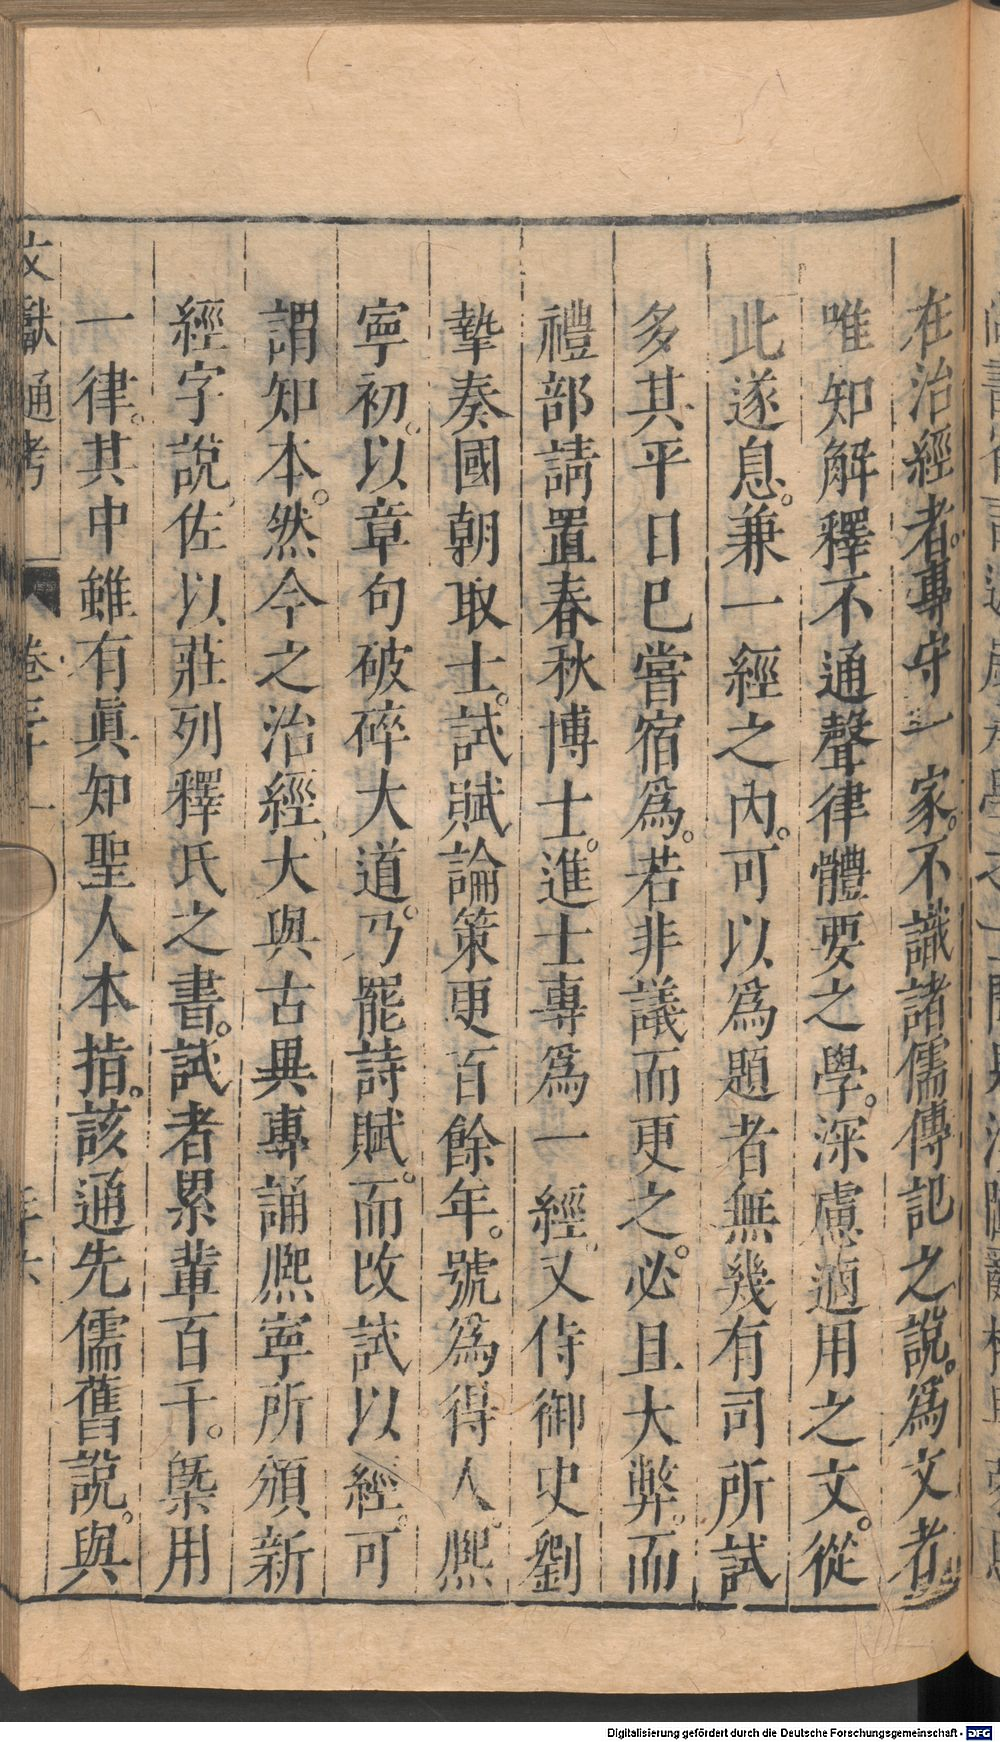 在治經者。專守一家。不識諸儒傳記之說。爲文者
唯知解釋不通聲律體要之學。深慮適用之文。從
此遂息。兼一經之內。可以爲題者無幾有司所試
多其平日已嘗宿爲。若非議而更之。必且大弊。而
禮部請置春秋博士。進士專爲一經。又侍御史劉
摯奏國朝取士。試賦論策更百餘年。號爲得人。熙
寧初。以章句破碎大道。乃罷詩賦。而改試以經。可
謂知本。然今之治經。大與古異專誦熙寧所頒新
經字說。佐以莊列釋氏之書。試者累輩百千。槩用
一律。其中雖有眞知聖人本指。該通先儒舊說。與
文獻通考
卷三十一
Digitalisierung gefördert durch die Deutsche Forschungsgemeinschaft - DFG